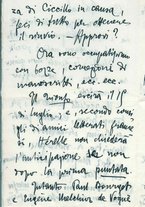 za di Ciccillo in causa,
feci di tutto per ottenere
il rinvio. — Appresi?
Ora sono occupatissimo
con bozze, correzione di
manoscritti ecc. ecc.
Il Trionfo uscirà il 15
di luglio; e, secondo consi-
gli di amici letterati france-
si, Hérelle non chiederà
l'anticipazione se non
dopo la prima puntata.
Intanto Paul Bourget
Eugène Melchior de Vogüé